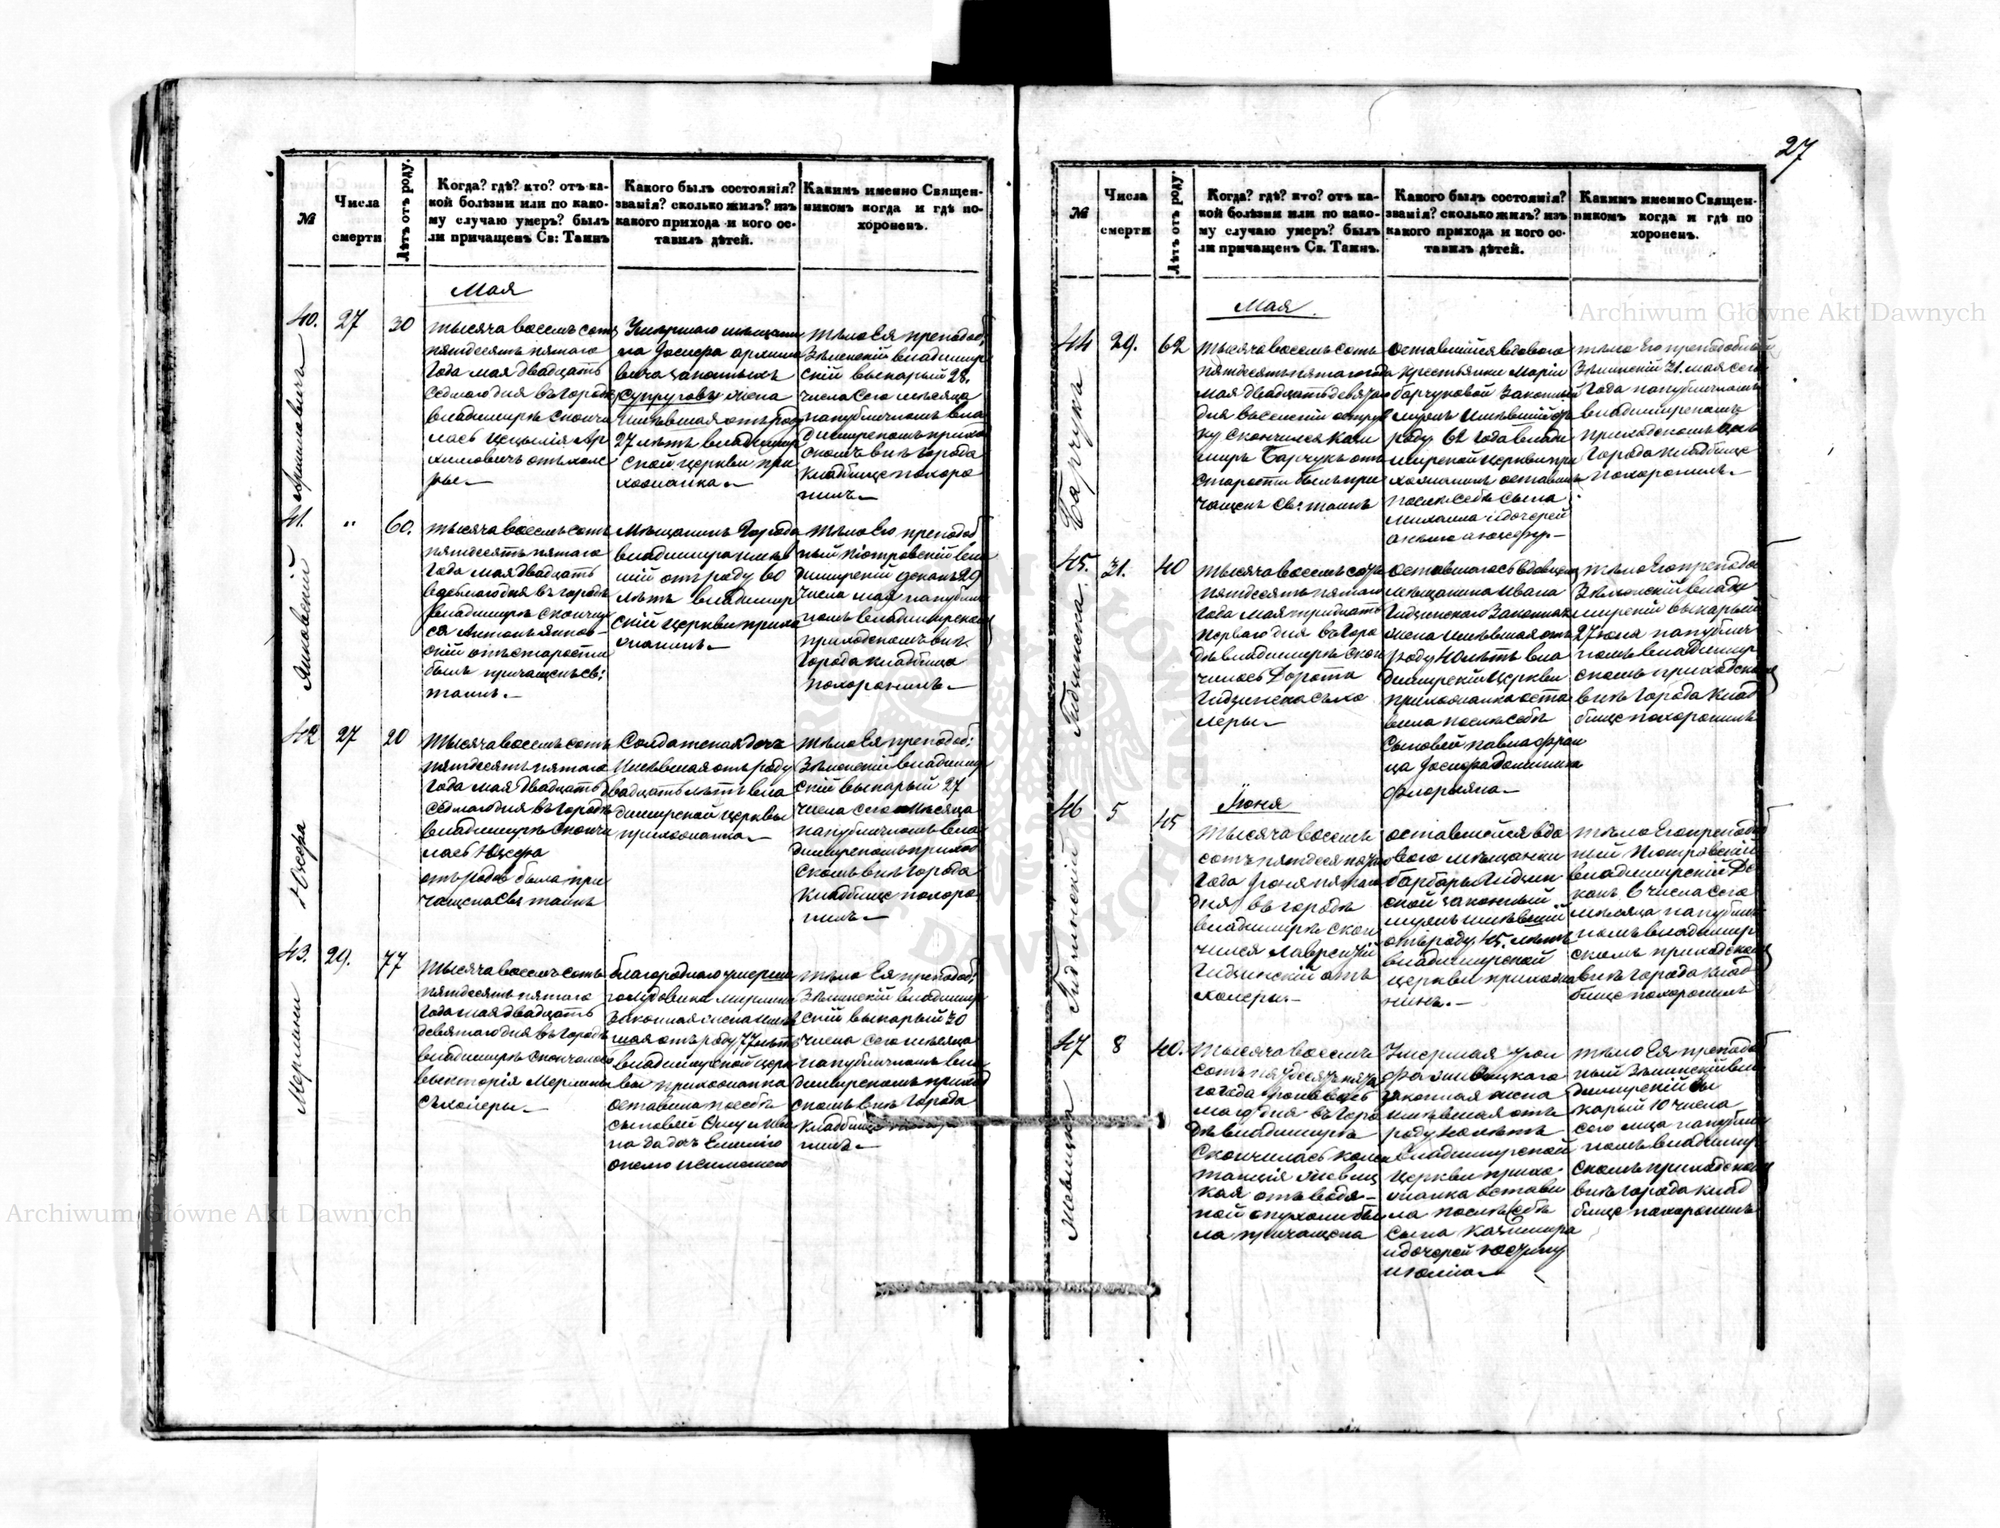 27
Archiwum Główne Akt Dawnych
№
Числа
смерти
Лѣтъ отъ роду.
Когда? гдѣ? кто? отъ ка-
кой болѣзни или по како-
му случаю умеръ? былъ
ли причащенъ Св: Таинъ
Какого былъ состоянія?
званія? сколько жилъ? изъ
какого прихода и кого ос-
тавилъ дѣтей.
Какимъ именно Священ-
никомъ когда и гдѣ по-
хороненъ.
Мая
40.
27
30
тысяча восемь сотъ
пятдесятъ пятаго
года мая двадцать
седмаго дня въ городѣ
Владимирѣ сконча
лась
отъ холе
ры
Умершаго мѣщани
на Іосифа
законныхъ
супруговъ
имѣвшая отъ роду
27 лѣтъ Владимир
ской церкви при
хожанка
тѣло Ея преподоб;
Зѣленскій Владимир
скій викарый 28.
числа сего мѣсяца
на публичномъ Вла
димирскомъ приход
скомъ внѣ города
кладбище похоро
нилъ
41.
"
60.
Янковскій
тысяча восемь сотъ
пятдесятъ пятаго
года мая двадцать
седьмаго дня въ городѣ
Владимирѣ скончал
ся Антонъ Янков-
скій отъ старости
былъ причащенъ св:
таинъ.
Мѣщанинъ города
Владимира имѣв
шій отъ роду 60
лѣтъ Владимир
ской церкви прихо
жанинъ
тѣло Его преподоб
ный Піотровскій Вла
димирскій деканъ 29
числа мая на публич
номъ Владимирском
приходскомъ внѣ
города кладбище
похоронилъ
42
27
20
Юзефа
тысяча восемь сотъ
пятдесятъ пятаго
года мая двадцать
седмаго дня въ городѣ
Владимирѣ сконча
лась Юзефа
отъ родов была при
чащена Свя таинъ
Солдатская дочь
имѣвшая отъ роду
двадцать лѣтъ Вла
димирской церквы
прихожанка
тѣло Ея преподоб;
Зѣленскій Владимир
скій викарый 27
числа сего мѣсяца
на публичномъ Вла
димирскомъ приход
скомъ внѣ города
кладбище похоро
нилъ
43.
29.
77
тысяча восемь сотъ
пятдесятъ пятаго
года мая двадцать
девятаго дня въ городѣ
Владимирѣ скончалась
Викторія
съ холеры
благороднаго умерша
законная жена имѣв
шая отъ роду 77 лѣтъ
Владимирской церк
вы прихожанка
оставила по себѣ
сыновей
тѣло Ея преподоб;
Зѣленскій Владимир
скій викарый 30
числа сего мѣсяца
на публичномъ Вла
димирскомъ приход
скомъ внѣ города
кладбище похоро
нилъ
№
Числа
смерти
Лѣтъ отъ роду.
Когда? гдѣ? кто? отъ ка-
кой болѣзни или по како-
му случаю умеръ? былъ
ли причащенъ Св. Таинъ.
Какого былъ состоянія?
званія? сколько жилъ? изъ
какого прихода и кого ос-
тавилъ дѣтей.
Какимъ именно Священ-
никомъ когда и гдѣ по
хороненъ.
Archiwum Główne Akt Dawnych
Мая
44
29.
62
Барчукъ
тысяча восемь сотъ
пятдесятъ пятаго года
мая двадцать девятаго
дня
скончился Кази
миръ Барчукъ отъ
старости былъ при
чащенъ Св: таинъ
оставшійся вдового
крестьянки Маріи
Барчуковой законный
мужъ имѣвшій отъ
роду 62 года Влади
мирской церкви при
хожанинъ оставилъ
послѣ себѣ сына
Михаила и дочерей
тѣло Его преподобный
Зѣлинскій 31. мая сего
года на публичномъ
Владимирскомъ
приходскомъ внѣ
города кладбище
похоронилъ
45.
31.
40
тысяча восемь сотъ
пятдесятъ пятаго
года мая тридцать
перваго дня въ горо
дѣ Владимирѣ скон
чилась Дорота
съ холе
леры
оставшагося вдовцемъ
мѣщанина Ивана
законная
жена имѣвшая отъ
роду 40 лѣтъ Вла
димирскій церкви
прихожанка оста
вила послѣ себѣ
сыновей Павла Фран
ца Іосифа Доминика
Флоріяна
тѣло Его преподоб
Зѣлонскій Влади
мирскій викарый
на публич
номъ Владимир
скомъ приходском
внѣ города клад
бище похоронилъ
46
5
45
Іюня
тысяча восемь
сотъ пятдесятъ
года Іюня пятаго
дня въ городѣ
Владимирѣ скон
чился Лаврентій
отъ
холеры
оставшейся вдо
вою мѣщанки
Барбары
законный
мужъ имѣвшій
отъ роду 45. лѣтъ
Владимирской
церкви прихожа
нинъ.
тѣло Его преподоб
ный Піотровскій
Владимирскій Де
канъ 6 числа сего
мѣсяца на публич
номъ Владимир
скомъ приходском
внѣ города клад
бище похоронилъ
47
8
40.
тысяча восемь
сотъ пятдесятъ пята
го года Іюня вось
маго дня въ горо
дѣ Владимирѣ
скончилась Конс
танція
кая отъ водя-
ной опухоли бы
ла причащена
законная жена
имѣвшая отъ
роду 40 лѣтъ
Владимирской
церкви прихо
жанка остави
ла послѣ себѣ
сына Казимира
и дочерей
тѣло Ея преподоб
ный Зѣлинскій Вла
димирскій ви
карый 10 числа
сего м-ца на публич
номъ Владимир
скомъ приходском
внѣ города клад
бище похоронилъ
Archiwum Główne Akt Dawnych